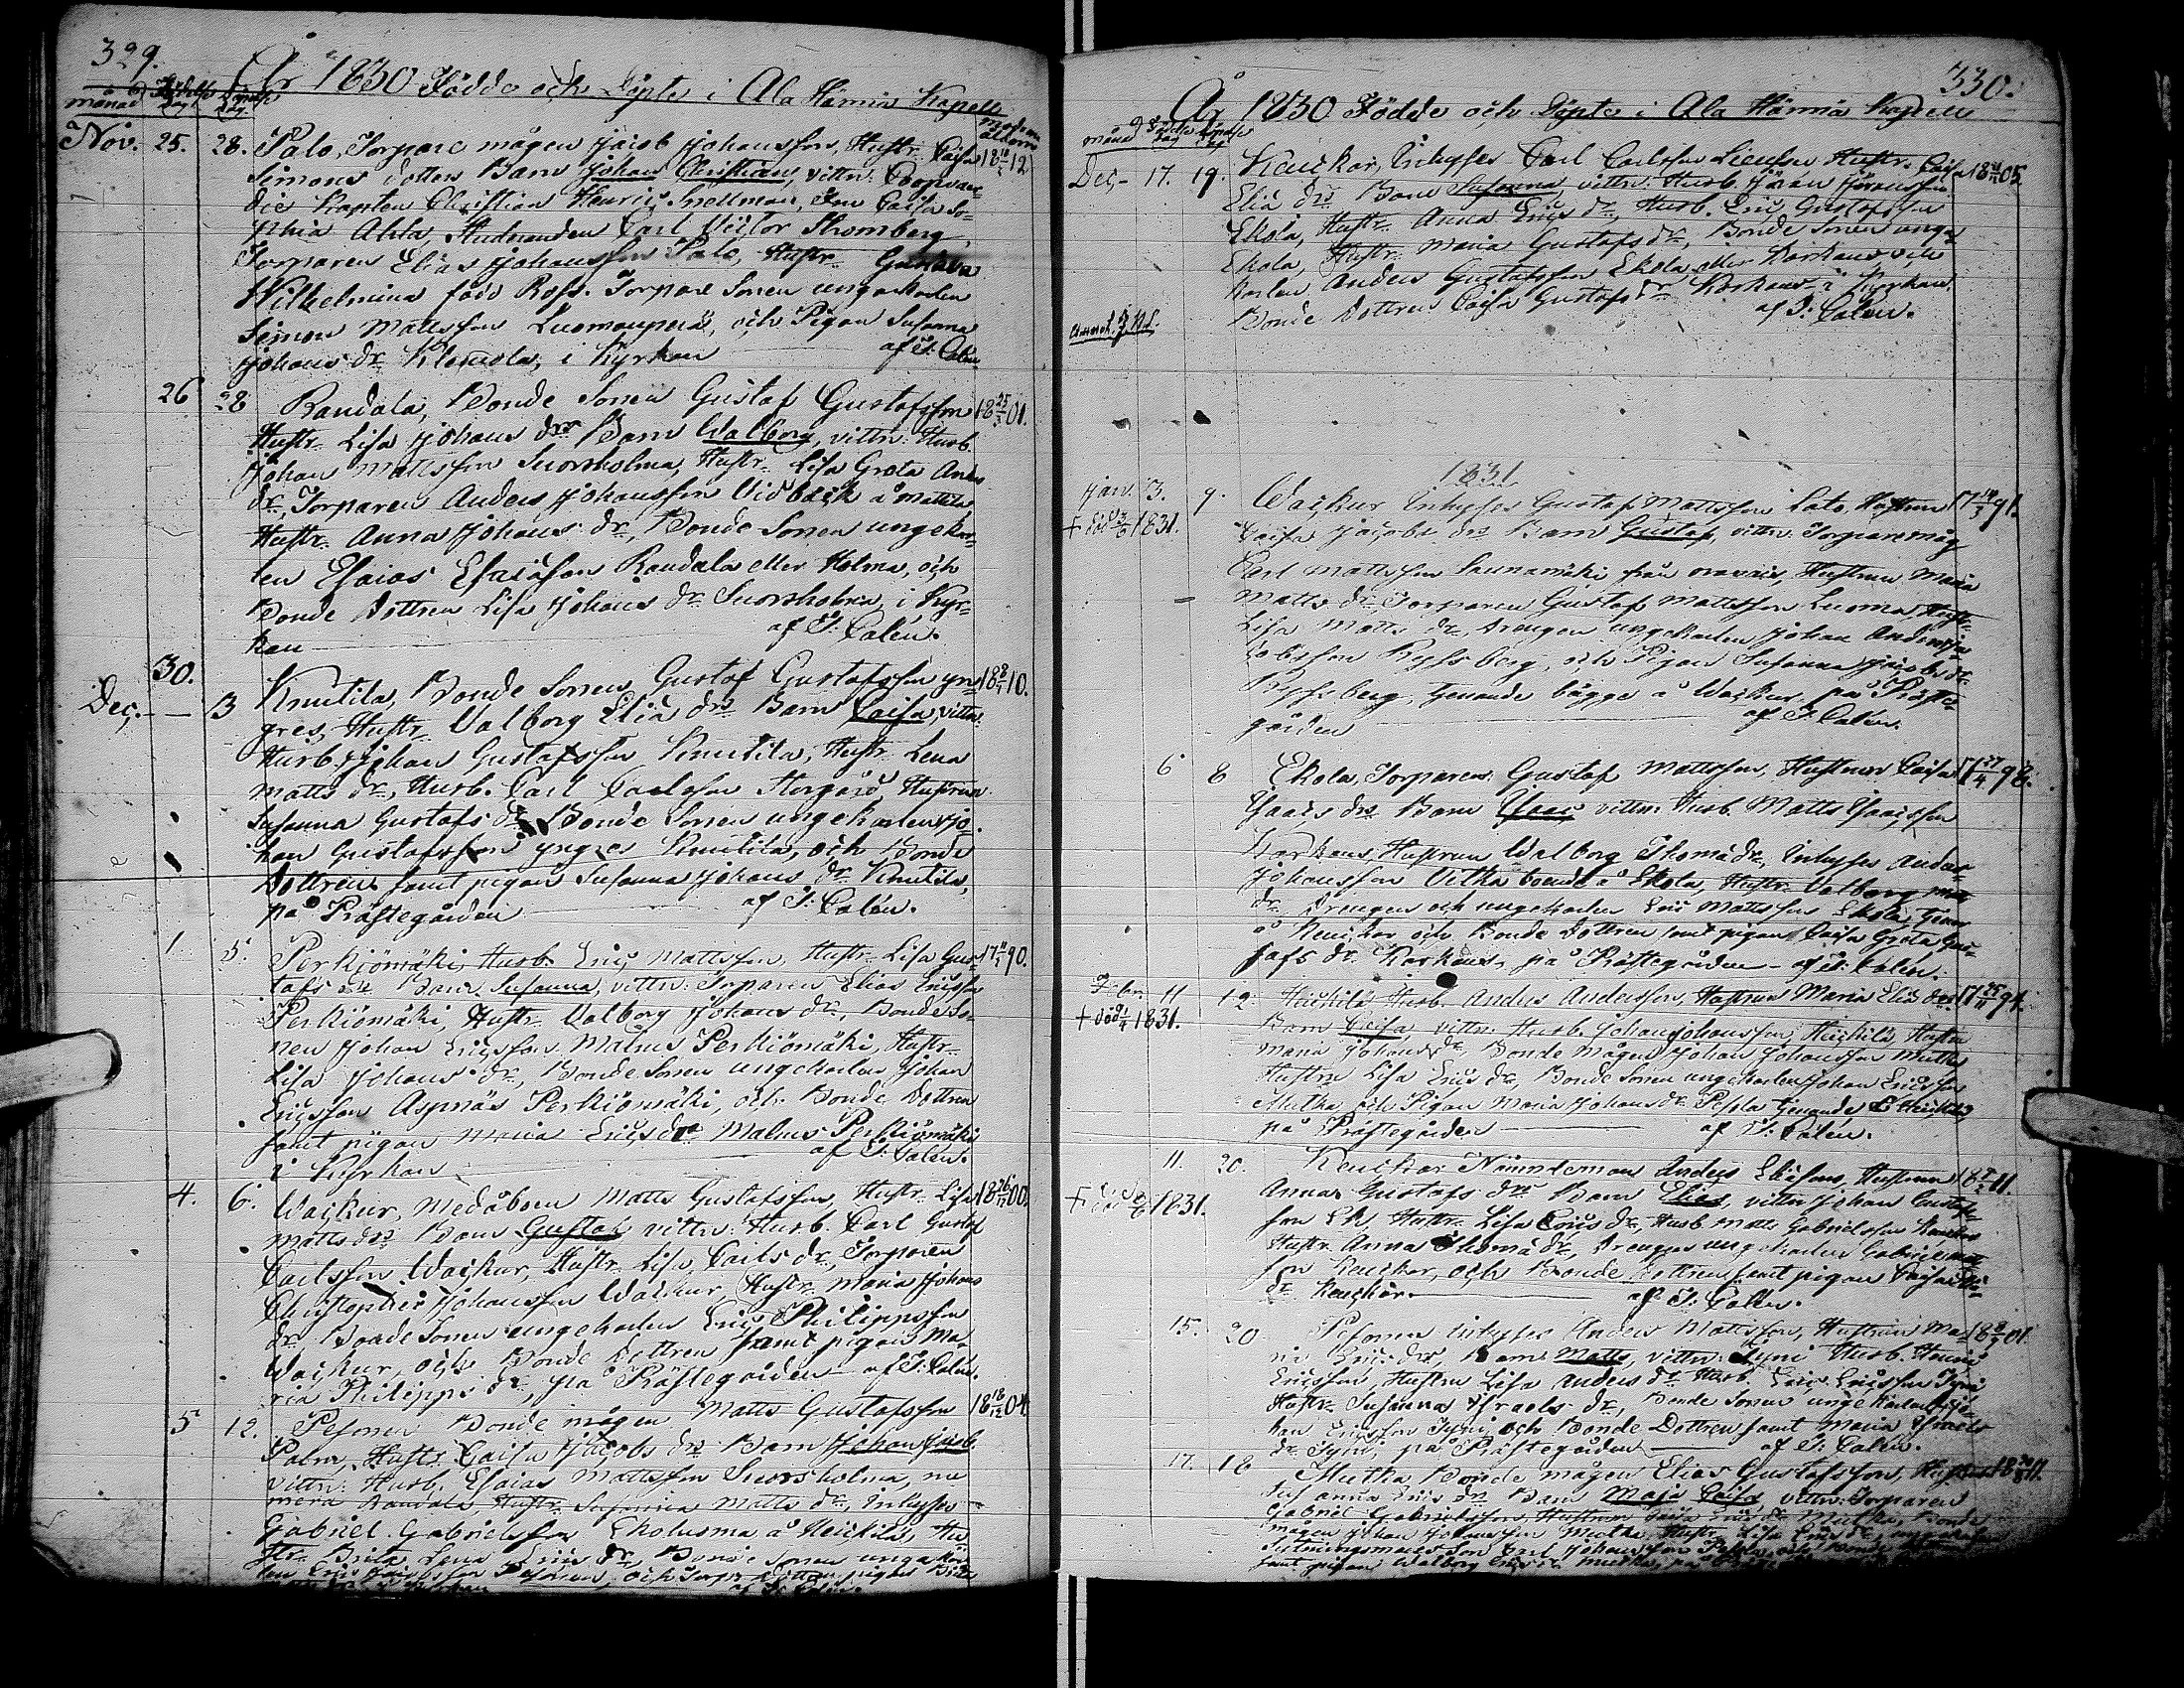 329.
År 1830 Födde och Döpte i Ala Härmä Kapell
månad Födelse dag Döpelse dag
Moderns ålder
Nov. 25. 28. Palo, Torpare mågen Jacob Johansson, Hustr. Caisa 18 12
Simons dotters Barn Johan Christian, vittn:
die Kapiten Christian Henric Hellman,
phia Ahla, Studeranden Carl Victor Stromberg,
Torparen Elias Johansson Palo, Hustr. Gustava
Wilhelmina född Ross. Torpare Sonen ungakarlen
Simon Mattsson Luomanperä, och Pigan Susanna
Johans dr. Klemola, i Kyrkan af J: Calén.
26 28 Randala, Bonde Sonen Gustaf Gustafsson 18 25/3 01.
Hustr. Lisa Johans drs Barn Walborg, vittn: Husb.
Johan Mattsson Snorsholma, Hustr. Lisa Greta Anders
dr, Torparen Anders Johansson Vidbäck å Mattila
Hustr. Anna Johans dr, Bonde Sonen ungekar-
len Esaias Esaiasson Randala eller Holma, och
Bonde Dottren Lisa Johans dr Snorsholma, i Kyr-
kan af J: Calén.
30.
Dec. — 3 Knutila, Bonde Sonen Gustaf Gustafsson yn- 18 10.
gres, Hustr. Valborg Eliæ drs Barn Caisa, vittn:
Husb. Johan Gustafsson Knutila, Hustr. Lena
Matts dr, Husb. Carl Carlsson Storgård, Hustrun
Susanna Gustafs dr Bonde Sonen ungekarlen Jo-
han Gustafsson yngres Knutila, och Bonde
Dottren samt pigan Susanna Johans dr Knutila,
på Prästegården af J: Calén.
1. 5. Perkiömäki, Husb. Eric Mattsson, Hustr. Lisa Gus- 17 90.
tafs drs Barn Susanna, vittn: Torparen Elias Ericsson
Perkiömäki, Hustr. Valborg Johans dr, Bonde So-
nen Johan Ericsson Malnus Perkiömäki, Hustr.
Lisa Johans dr, Bonde Sonen ungekarlen Johan
Ericsson Aspnäs Perkiömäki, och Bonde Dottren
samt pigan Maria Erics dr Malnus Perkiömäki
i Kyrkan af J: Calén.
4. 6. Wackur, Medåboen Matts Gustafsson, Hustr. Lisa 18 26/12 00.
Matts drs Barn Gustaf vittn: Husb. Carl Gustaf
Carlsson Wackur, Hustr. Lisa Carls dr, Torparen
Christopher Johansson Wackur, Hustr. Maria Johans
dr. Bonde Sonen ungekarlen Eric Philippsson
Wackur, och Bonde Dottren samt pigan Ma-
ria Philipps dr på Prästegården af J: Calén.
5 12. Pesonen Bonde mågen Matts Gustafsson 18 18/12 04
Palm, Hustr. Caisa Jacobs drs Barn Johan Jacob
vittn: Husb. Esaias Mattsson Snorsholma, nu
mera Randala, Hustr. Susanna Matts dr, Inhyses
Gabriel Gabrielsson Ekoluoma å Heickilä, Hu-
str. Brita Lena Erics dr, Bonde Sonen ungekar-
len Eric Jacobsson Pesonen, och
330.
År 1830 Födde och Döpte i Ala Härmä Kapell
månad Födelse dag Döpelse dag
Dec. 17. 19. Keuckar, Inhyses Carl Carlsson Hustr. Caisa 18 05.
Eliæ drs Barn Susanna, vittn: Husb. Göran Göransson
Ekola, Hustr. Anna Erics dr, Husb. Eric Gustafsson
Ekola, Hustr. Maria Gustafs dr, Bonde Sonen unge-
karlen Anders Gustafsson Ekola eller Karhaus och
Bonde Dottren Caisa Gustafs dr Karhaus i Kyrkan.
af J: Calén.
1831
Jan. 3. 9. Wackur Inhyses Gustaf Mattsson Lato, Hustrun 17 91.
† död 1831. Caisa Jacobs drs Barn Gustaf, vittn: Torpare måg
Carl Mattsson Saunamäki från Oravais, Hustrun Maria
Matts dr, Torparen Gustaf Mattsson Luoma, Hustr.
Lisa Matts dr, Drengen ungekarlen Johan Anders Ja-
cobsson Ryssberg, och Pigan Susanna Jacobs dr
Ryssberg, tjenande bägge å Wackur, på Präste-
gården af J: Calén.
6 8 Ekola, Torparen Gustaf Mattsson, Hustrun Caisa 17 27/4 98.
Isaacs drs Barn Isaac vittn: Husb. Matts Isaacsson
Karhaus, Hustrun Walborg Thomæ dr, Inhyses Anders
Johansson Vilka boende å Ekola, Hustr. Valborg Matts
dr. Drengen och ungekarlen Eric Mattsson Ekola,
å Keuckar och Bonde Dottren samt pigan Caisa Greta Gus-
tafs dr. Karhaus, på Prästegården af J: Calén.
11 12 Heickilä Husb. Anders Andersson, Hustrun Maria Eliæ drs 17 25/11 94.
† död 1/4 1831. Barn Caisa, vittn: Husb. Johan Johansson Heickilä, Hustr.
Maria Johans dr, Bonde mågen Johan Johansson Mutka
Hustrun Lisa Erics dr, Bonde Sonen ungekarlen Johan Ericsson
Mutka och Pigan Maria Johans dr Pesola tjenande å Heickilä
på Prästegården af J: Calén.
11. 20. Keuckar Nämndeman Anders Eliasson, Hustrun 18 11.
† död 1831. Anna Gustafs drs Barn Elias, vittn: Johan Gustafs-
son Ek, Hustr. Lisa Erics dr, Husb. Matts Gabrielsson
Hustr. Anna Thomæ dr, Drengen ungekarlen Gabriel Matts-
son Keuckar, och Bonde Dottren samt pigan Caisa
dr Keuckar. af J: Calén.
15. 20 Pesonen Inhyses Anders Mattsson, Hustrun Ma- 18 01.
ria Erics drs, Barn Matts, vittn: Tyni Husb. Henric
Ericsson, Hustrun Lisa Anders dr Husb. Eric Ericsson Tyni
Hustr. Susanna Israels dr, Bonde Sonen ungekarlen Jo-
han Ericsson Tyni och Bonde Dottren samt Maria Israels
dr Tyni, på Prästegården af J: Calén.
17. 18 Mutka Bonde mågen Elias Gustafsson, Hustrun 18 11.
Susanna Erics drs Barn Maja Caisa, vittn: Torparen
Gabriel Gabrielsson, Hustrun Caisa Erics dr Mutka, Bonde
mågen Johan Johansson Mutka, Hustr. Lisa Erics dr,
samt pigan Walborg Erics dr Mutka, på